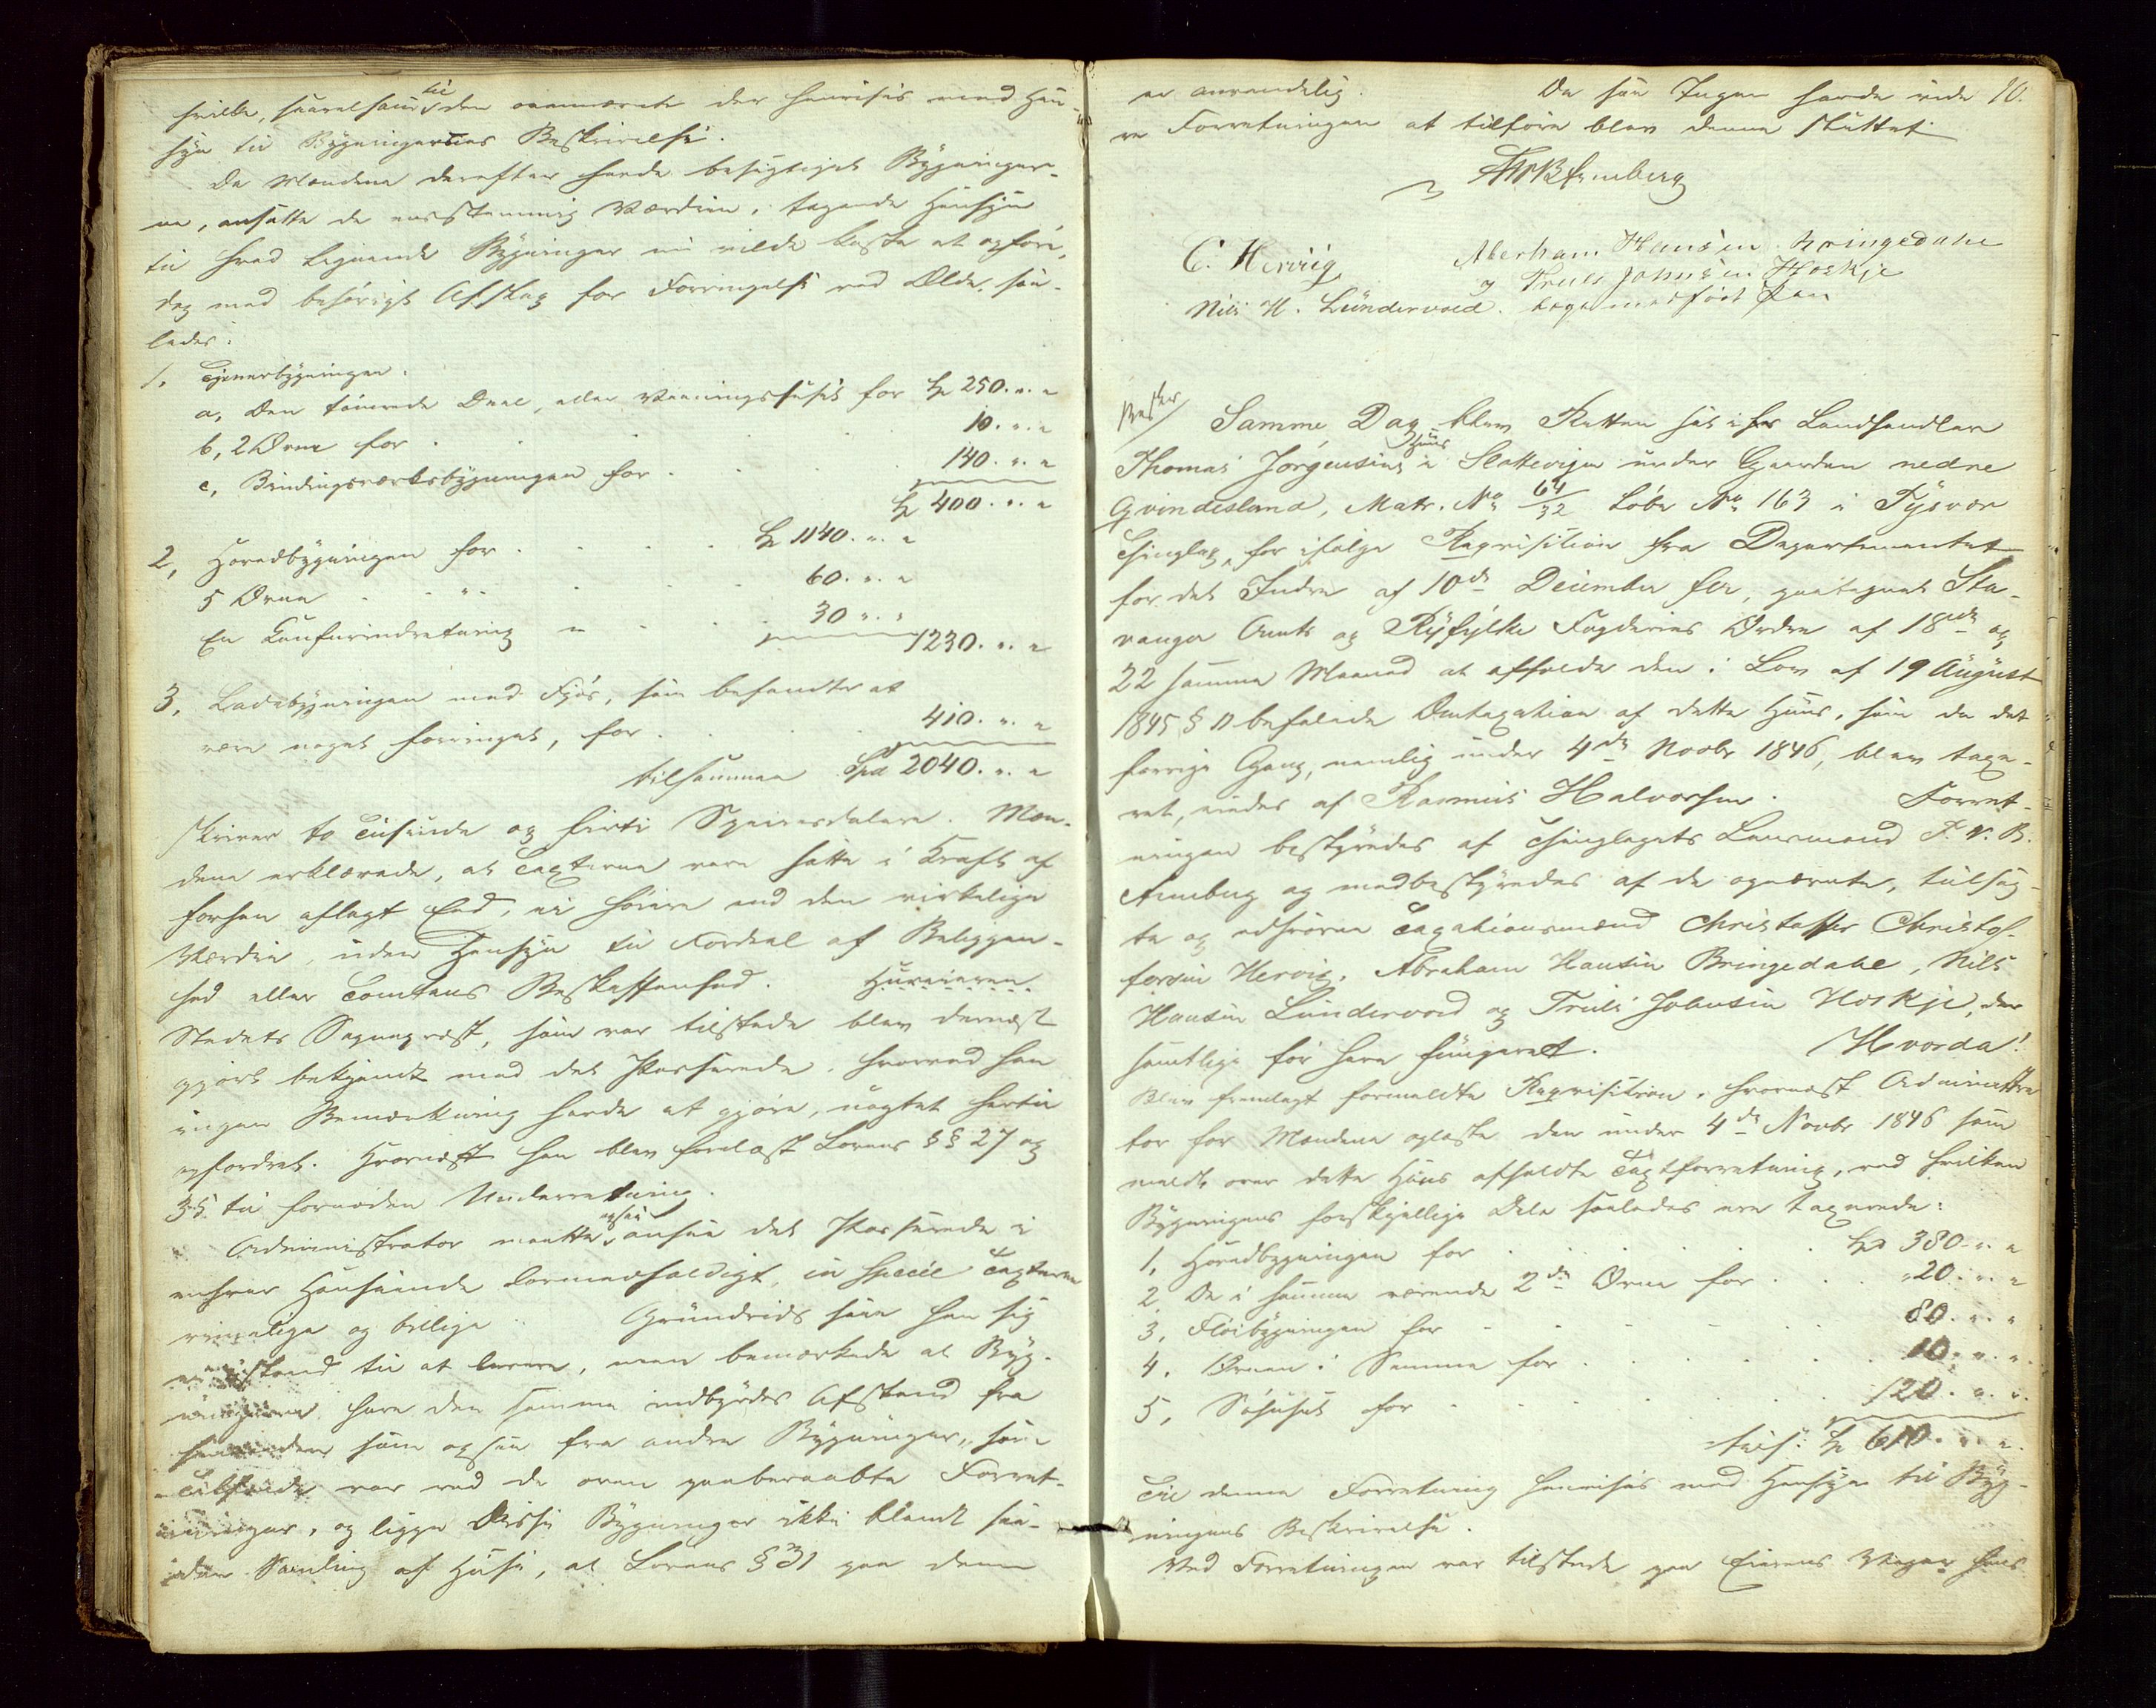 hvilke, saavelsom til den ovennævnte der henvises med Hen-
syn til Bygningernes Beskrivelse.
Da Mændene derefter havde besigtiget Bygninger-
ne, ansatte de eenstemmig Værdien, tagende Hensyn
til hvad lignende Bygninger nu vilde koste at opføre,
dog med behørigt Afslag for Forringelse ved Ælde, saa-
ledes:
1. Tjenerbygningen.
a, Den tømrede Deel, eller Vaaningshuset for Sp 250. " "
b, 2 Ovne for . 10. " "
c, Bindingsværksbygningen for . 140. " "
Sp 400. " "
2, Hovedbygningen for . . . . Sp 1140. " "
5 Ovne . . " . . 60. " "
En indretning " . . 30 " "
1230. " "
3, Ladebygningen med Fjøs, som befandtes at
være noget forringet, for . . . 410. " "
tilsammen Spd 2040. " "
skriver to Tusinde og firti Speciesdalere. Mæn-
dene erklærede, at Taxterne vare satte i Kraft af
forhen aflagt Eed, ei høiere end den virkelige
Værdie, uden Hensyn til Fordeel af Beliggen-
hed eller Tomtens Beskaffenhed. Huseieren
Stedets Sognepræst, som var tilstede blev dernæst
gjort bekjendt med det Passerede, hvorved han
ingen Bemærkning havde at gjøre, uagtet hertil
opfordret. Hvornæst han blev forelæst Lovens §§ 27 og
35 til fornøden Underretning.
Administrator maatte ogsaa ansee det Passerede i
enhver Henseende lovmedholdigt, in specie Taxterne
rimelige og billige. Grundrids saae han sig
ei istand til at levere, men bemærkede at Byg-
ningerne have den samme indbyrdes Afstand fra
hverandre som ogsaa fra andre Bygninger, som
Tilfælde var ved de oven paaberaabte Forret-
ninger, og ligge disse Bygninger ikke blandt saa-
dan Samling af Huse, at Lovens § 31 paa dem
er anvendelig. Da saa Ingen havde vide 10.
re Forretningen at tilføie blev denne sluttet
C. Hervig Aberham Hansen Bringedahl
og Truls Johnsen Høskje
Nils H. Lundervold. begge med ført Pen
Samme Dag blev Retten sat i for Landhandler
Thomas Jørgensens Huus i Slottevigen under Gaarden nedre
Qvindesland, Matr. No 64/32 Løbe No 163 i Tysvær
Thinglag, for ifølge Reqvisition fra Departementet
for det Indre af 10de December f.A., paategnet Sta-
vanger Amts og Ryfylke Fogderies Ordre af 18de og
22 samme Maaned at afholde den i Lov af 19 August
1845 § 11 befalede Omtaxation af dette Huus, som da det
forrige Gang, nemlig under 4de Novbr 1846, blev taxe-
ret, eiedes af Rasmus Halvorsen. Forret-
ningen bestyredes af Thinglagets Lensmand F. W. B.
Arneberg og medbestyredes af de opnævnte, tilsag-
te og edsvorne Taxationsmænd Christoffer Christof-
fersen Hervig, Abraham Hansen Bringedahl, Nils
Hansen Lundervold og Truls Johnsen Høskje, der
samtlige før have fungeret. Hvorda!
Blev fremlagt formeldte Reqvisition, hvornæst Administra
tor for Mændene oplæste den under 4de Novbr 1846 som
meldt over dette Huus afholdte Taxtforretning, ved hvilken
Bygningens forskjellige Dele saaledes ere taxerede:
1, Hovedbygningen for . . . . . Spd 380. " "
2, De i samme værende 2de Ovne for . . . " 20. " "
3, Fløibygningen for . . . . . 80. " "
4. Ovnen i Samme for . . . . . 10. " "
5, Søhuset for . . . . . 120. " "
tils: Sp 610. " "
Til denne Forretning henvises med Hensyn til Byg-
ningens Beskrivelse.
Ved Forretningen var tilstede paa Eierens Vegne hans